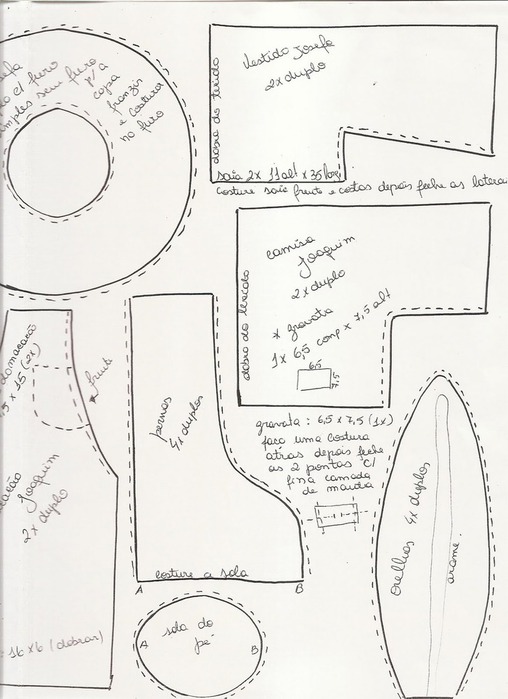 c/ furo
sem furo
p/ a
copa
franzir
e costura
no furo
Vestido Josefa
2x duplo
dobra do tecido
saia 2x 11 alt x 35 larg
costure saia frente e costas depois feche as laterais
camisa
Joaquim
2x duplo
x gravata
1x 6,5 comp x 7,5 alt
6,5
7,5
dobra do tecido
gravata: 6,5 x 7,5 (1x)
faço uma costura
atras depois feche
as 2 pontas c/
fina camada
de manta
pernas
4x duplos
costure a sola
A
B
sola do
pé
A
B
orelhas 4x duplos
arame.
do macacão
,5 x 15 (2x)
frente
Joaquim
2x duplo
= 16 x 6 (dobrar)